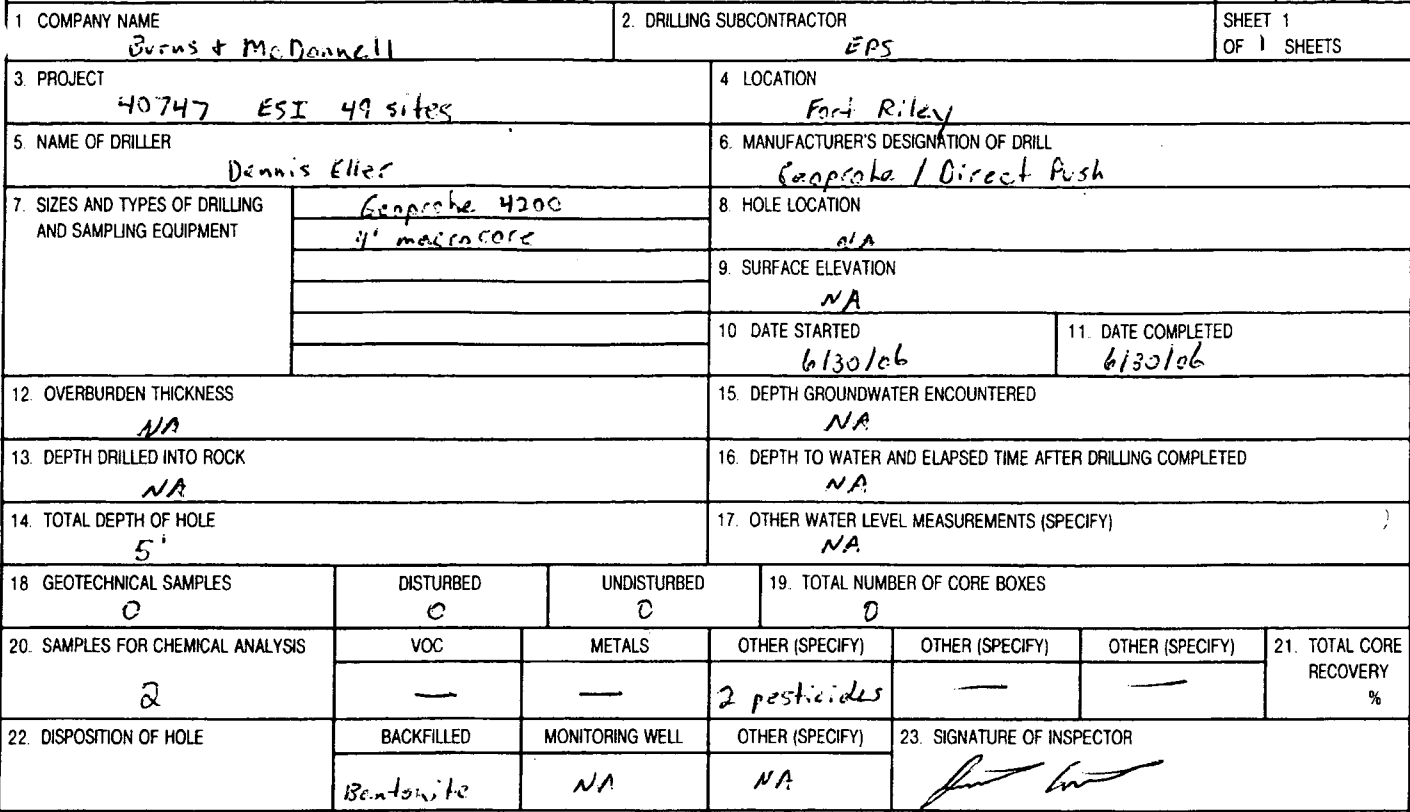 1 COMPANY NAME
Burns + McDonnell
2. DRILLING SUBCONTRACTOR
EPS
SHEET 1
OF 1 SHEETS
3. PROJECT
40747 ESI 49 sites
4 LOCATION
Fort Riley
5. NAME OF DRILLER
Dennis Eller
6. MANUFACTURER'S DESIGNATION OF DRILL
Geoprobe / Direct Push
7. SIZES AND TYPES OF DRILLING
AND SAMPLING EQUIPMENT
Geoprobe 4200
4' macrocore
8. HOLE LOCATION
NA
9. SURFACE ELEVATION
NA
10 DATE STARTED
6/30/06
11. DATE COMPLETED
6/30/06
12. OVERBURDEN THICKNESS
NA
15. DEPTH GROUNDWATER ENCOUNTERED
NA
13. DEPTH DRILLED INTO ROCK
NA
16. DEPTH TO WATER AND ELAPSED TIME AFTER DRILLING COMPLETED
NA
14. TOTAL DEPTH OF HOLE
5'
17. OTHER WATER LEVEL MEASUREMENTS (SPECIFY)
NA
18 GEOTECHNICAL SAMPLES
0
DISTURBED
0
UNDISTURBED
0
19. TOTAL NUMBER OF CORE BOXES
0
20. SAMPLES FOR CHEMICAL ANALYSIS
2
VOC
—
METALS
—
OTHER (SPECIFY)
2 pesticides
OTHER (SPECIFY)
—
OTHER (SPECIFY)
—
21. TOTAL CORE
RECOVERY
%
22. DISPOSITION OF HOLE
BACKFILLED
Bentonite
MONITORING WELL
NA
OTHER (SPECIFY)
NA
23. SIGNATURE OF INSPECTOR